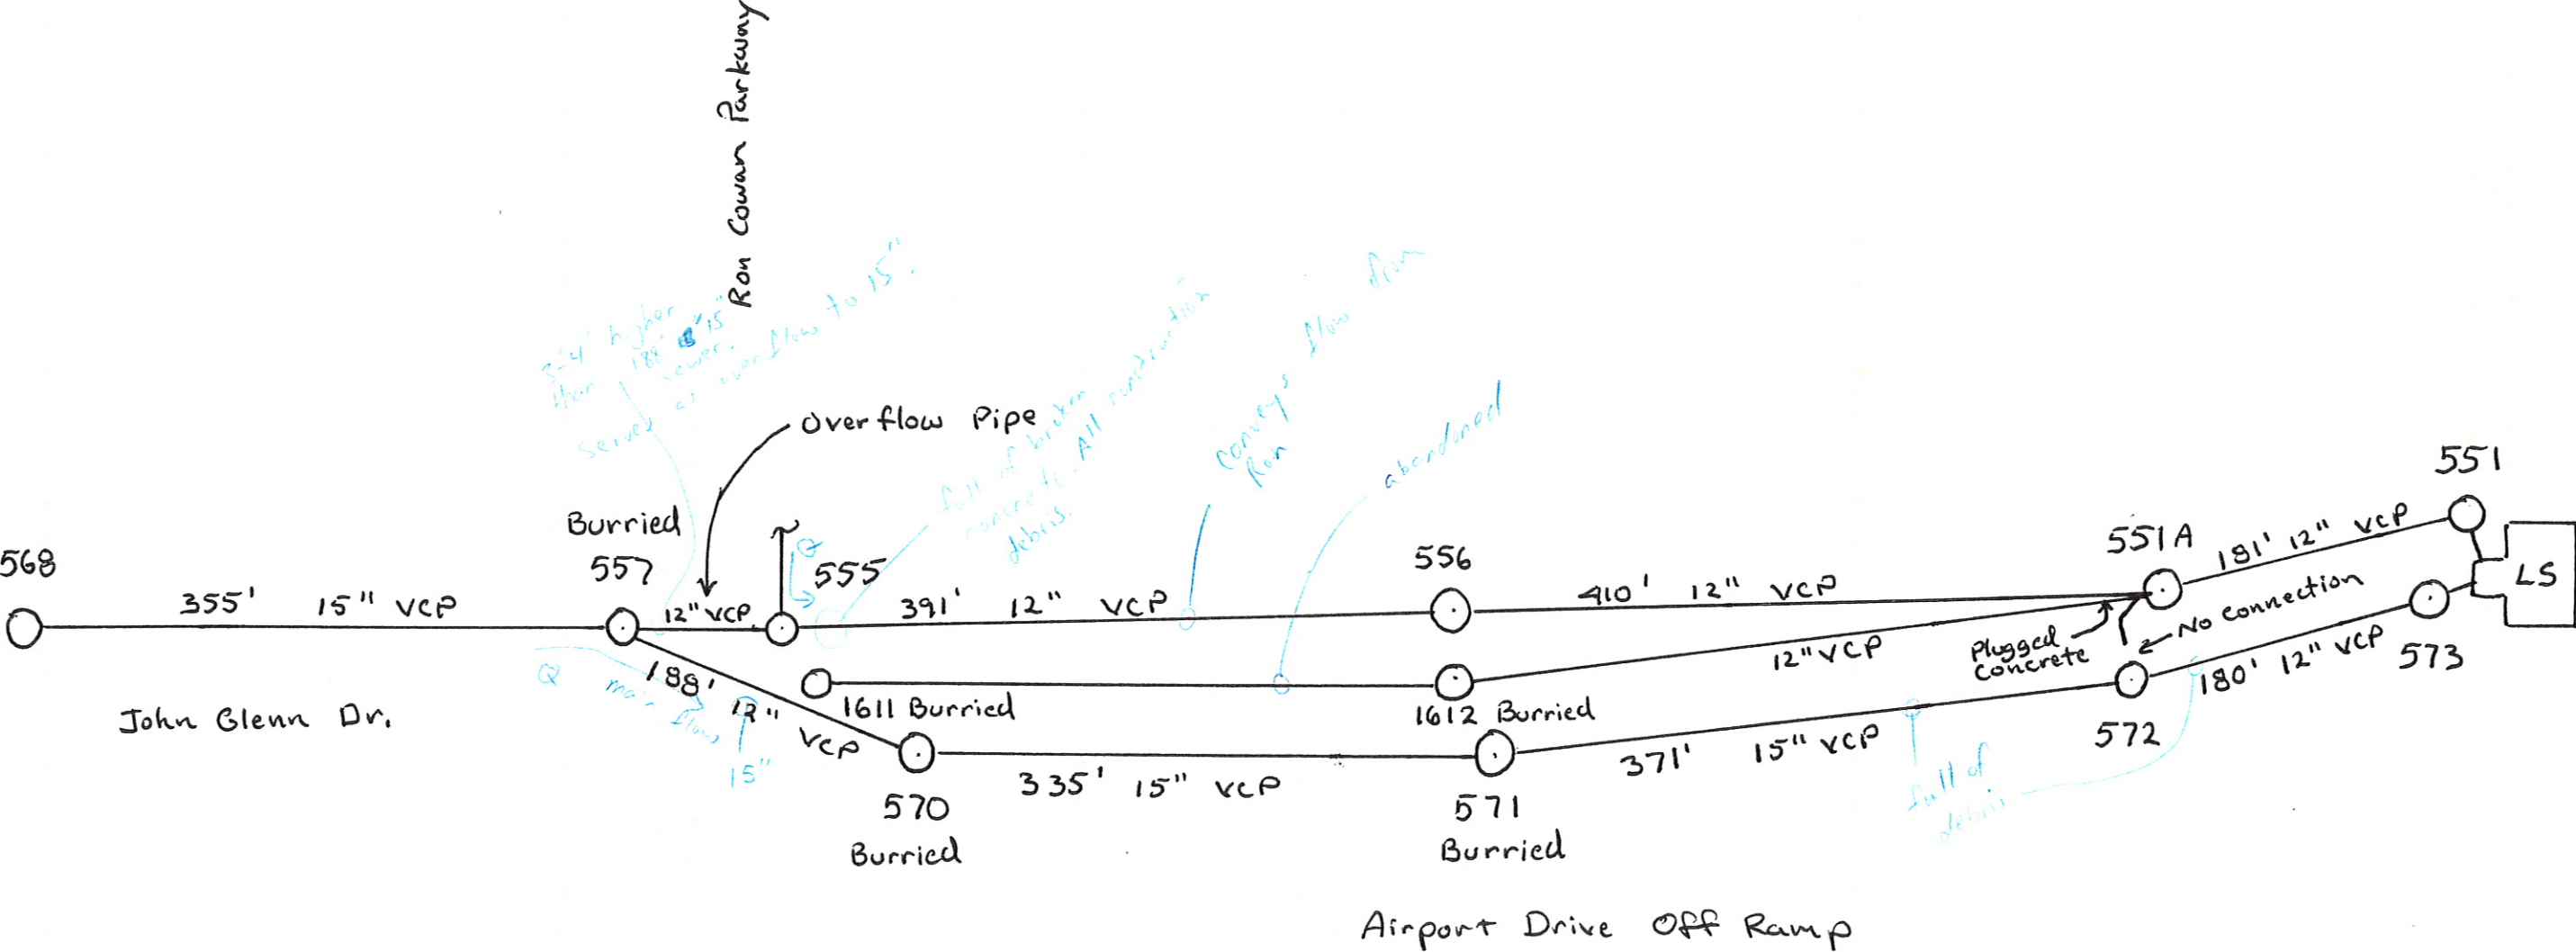 Ron Cowan Parkway
3-4' higher
than 188' 15"
sewer.
serves as overflow to 15".
Overflow Pipe
full of broken
concrete. All construction
debris.
conveys flow from
Ron
abandoned
568
355' 15" VCP
Burried
557
12" VCP
Q
555
391' 12" VCP
556
410' 12" VCP
551A
181' 12" VCP
551
LS
No connection
Plugged
Concrete
12" VCP
180' 12" VCP
573
572
1611 Burried
1612 Burried
188'
12"
VCP
Q main flow
15"
John Glenn Dr.
570
Burried
335' 15" VCP
571
Burried
371' 15" VCP
full of
debris
Airport Drive Off Ramp